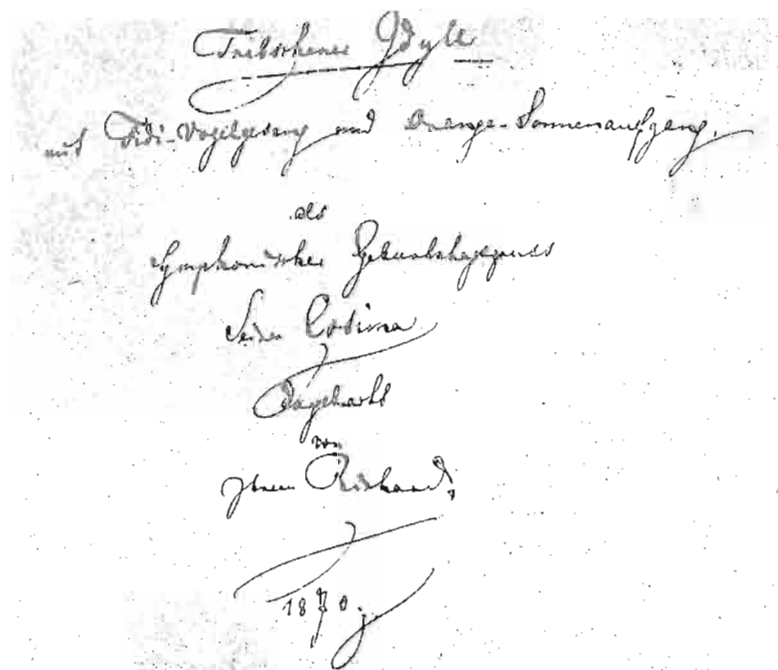 Tribschener Idyll
mit Fidi-Vogelgesang und Orange-Sonnenaufgang,
als
symphonischer Geburtstagsgruss
Seiner Cosima
dargebracht
von
Ihrem Richard,
1870.